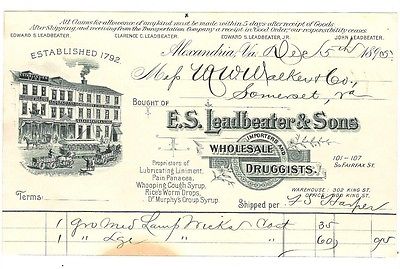 All Claims for allowance of any kind must be made within 5 days after receipt of Goods.
After Shipping and receiving from the Transportation Company a receipt in Good Order, our responsibility ceases.
EDWARD S. LEADBEATER. CLARENCE C. LEADBEATER. EDWARD S. LEADBEATER, JR. JOHN LEADBEATER.
ESTABLISHED 1792.
Alexandria, Va. Dec 5th 189
Mess W W Walker & Co,
Somerset, Va
BOUGHT OF
E.S. Leadbeater & Sons
IMPORTERS AND
WHOLESALE
DRUGGISTS.
Proprietors of
Lubricating Liniment,
Pain Panacea,
Whooping Cough Syrup,
Rice's Worm Drops,
Dr Murphy's Group Syrup
101-107
So Fairfax St.
WAREHOUSE: 302 KING ST.
OFFICE: 306 KING ST.
Terms:
Shipped per
1 gro Med Lamp Wicks Cost 35
1 " Lge " 60 95